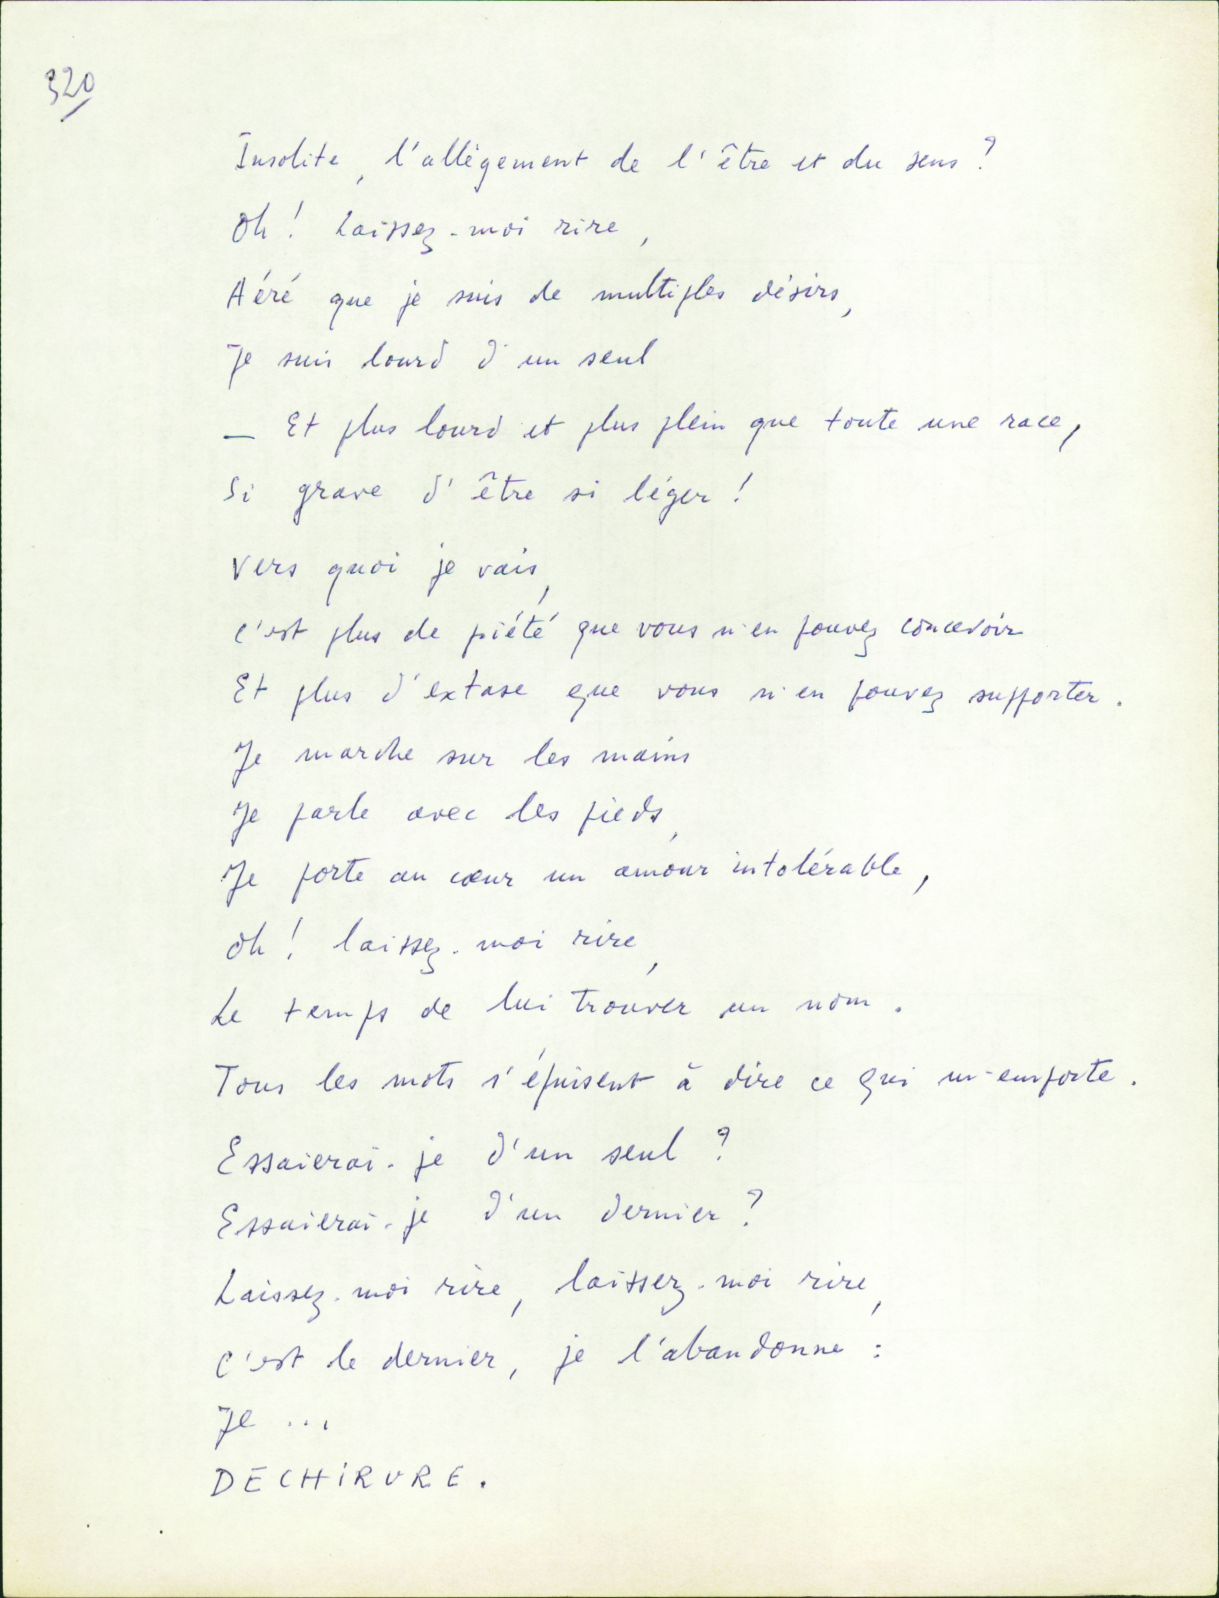 320
Insolite, l'allègement de l'être et du sens ?
Oh ! Laissez-moi rire,
Aéré que je suis de multiples désirs,
Je suis lourd d'un seul
— Et plus lourd et plus plein que toute une race,
Si grave d'être si léger !
Vers quoi je vais,
C'est plus de piété que vous n'en pouvez concevoir
Et plus d'extase que vous n'en pouvez supporter.
Je marche sur les mains
Je parle avec les pieds,
Je porte au cœur un amour intolérable,
Oh ! laissez-moi rire,
Le temps de lui trouver un nom.
Tous les mots s'épuisent à dire ce qui m'emporte.
Essaierai-je d'un seul ?
Essaierai-je d'un dernier ?
Laissez-moi rire, laissez-moi rire,
C'est le dernier, je l'abandonne :
Je ...
DECHiRURE.